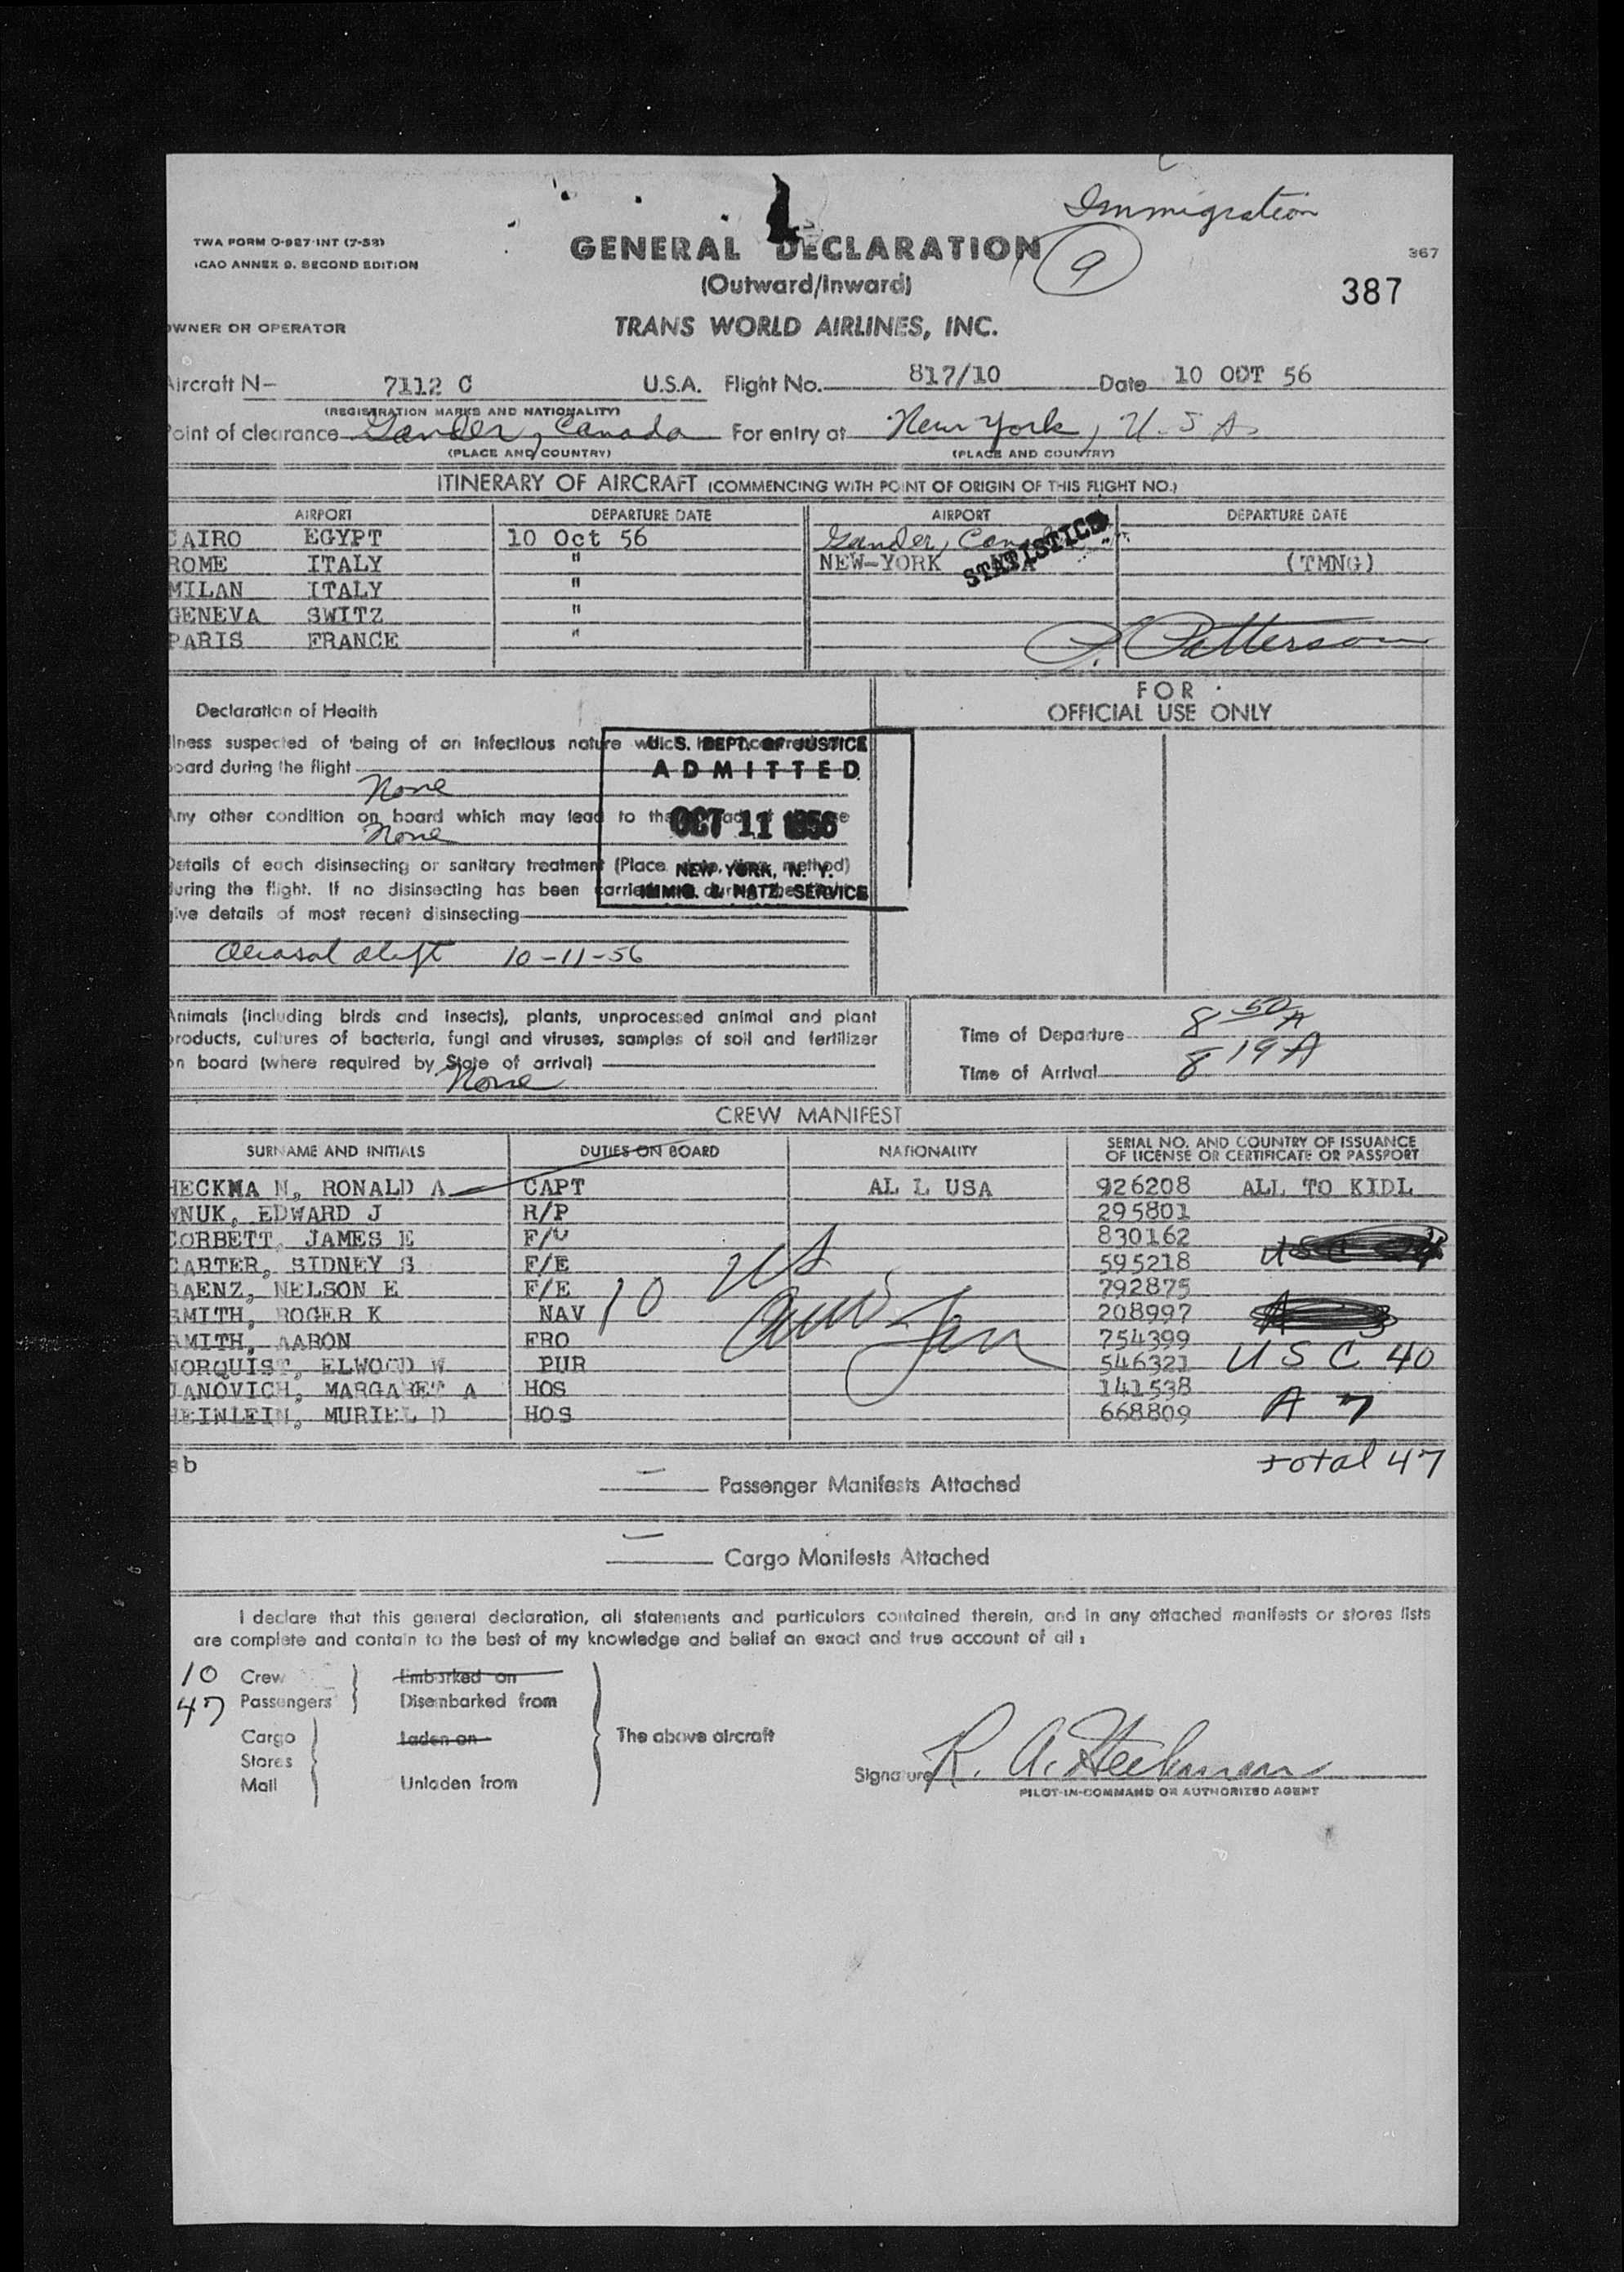 Immigration
TWA FORM O-987-INT (7-53)
ICAO ANNEX 9. SECOND EDITION
GENERAL DECLARATION
9
(Outward/Inward)
367
387
OWNER OR OPERATOR
TRANS WORLD AIRLINES, INC.
Aircraft N- 7112 C U.S.A. Flight No. 817/10 Date 10 OCT 56
(REGISTRATION MARKS AND NATIONALITY)
Point of clearance Gander, Canada For entry at New York, U.S.A.
(PLACE AND COUNTRY) (PLACE AND COUNTRY)
ITINERARY OF AIRCRAFT (COMMENCING WITH POINT OF ORIGIN OF THIS FLIGHT NO.)
AIRPORT DEPARTURE DATE AIRPORT DEPARTURE DATE
CAIRO EGYPT 10 Oct 56 Gander,
ROME ITALY " NEW-YORK (TMNG)
STATISTICS
MILAN ITALY "
GENEVA SWITZ "
PARIS FRANCE " Patterson
Declaration of Health
FOR
OFFICIAL USE ONLY
llness suspected of being of an infectious nature
board during the flight
None
Any other condition on board which may lead to the
None
Details of each disinsecting or sanitary treatment (Place method)
during the flight. If no disinsecting has been carried
give details of most recent disinsecting
10-11-56
U.S. DEPT. OF JUSTICE
ADMITTED
OCT 11 1956
NEW YORK, N. Y.
IMMIG. & NATZ. SERVICE
Animals (including birds and insects), plants, unprocessed animal and plant
products, cultures of bacteria, fungi and viruses, samples of soil and fertilizer
on board (where required by State of arrival)
None
Time of Departure 8 50 A
Time of Arrival 8 19 A
CREW MANIFEST
SURNAME AND INITIALS DUTIES ON BOARD NATIONALITY SERIAL NO. AND COUNTRY OF ISSUANCE
OF LICENSE OR CERTIFICATE OR PASSPORT
HECKMA N, RONALD A CAPT AL L USA 926208 ALL TO KIDL
WNUK, EDWARD J R/P 295801
CORBETT, JAMES E 830162
CARTER, SIDNEY S F/E 595218
SAENZ, NELSON E F/E 792875
SMITH, ROGER K NAV 208997
SMITH, AARON FRO 754399
NORQUIST, ELWOOD W PUR 546321 USC 40
JANOVICH, MARGARET A HOS 141538
HEINLEIN, MURIEL D HOS 668809 A 7
10 US
sb
Total 47
Passenger Manifests Attached
Cargo Manifests Attached
I declare that this general declaration, all statements and particulars contained therein, and in any attached manifests or stores lists
are complete and contain to the best of my knowledge and belief an exact and true account of all:
10 Crew Embarked on
47 Passengers Disembarked from
Cargo Laden on The above aircraft
Stores
Mail Unladen from
Signature R. A. Heckman
PILOT-IN-COMMAND OR AUTHORIZED AGENT